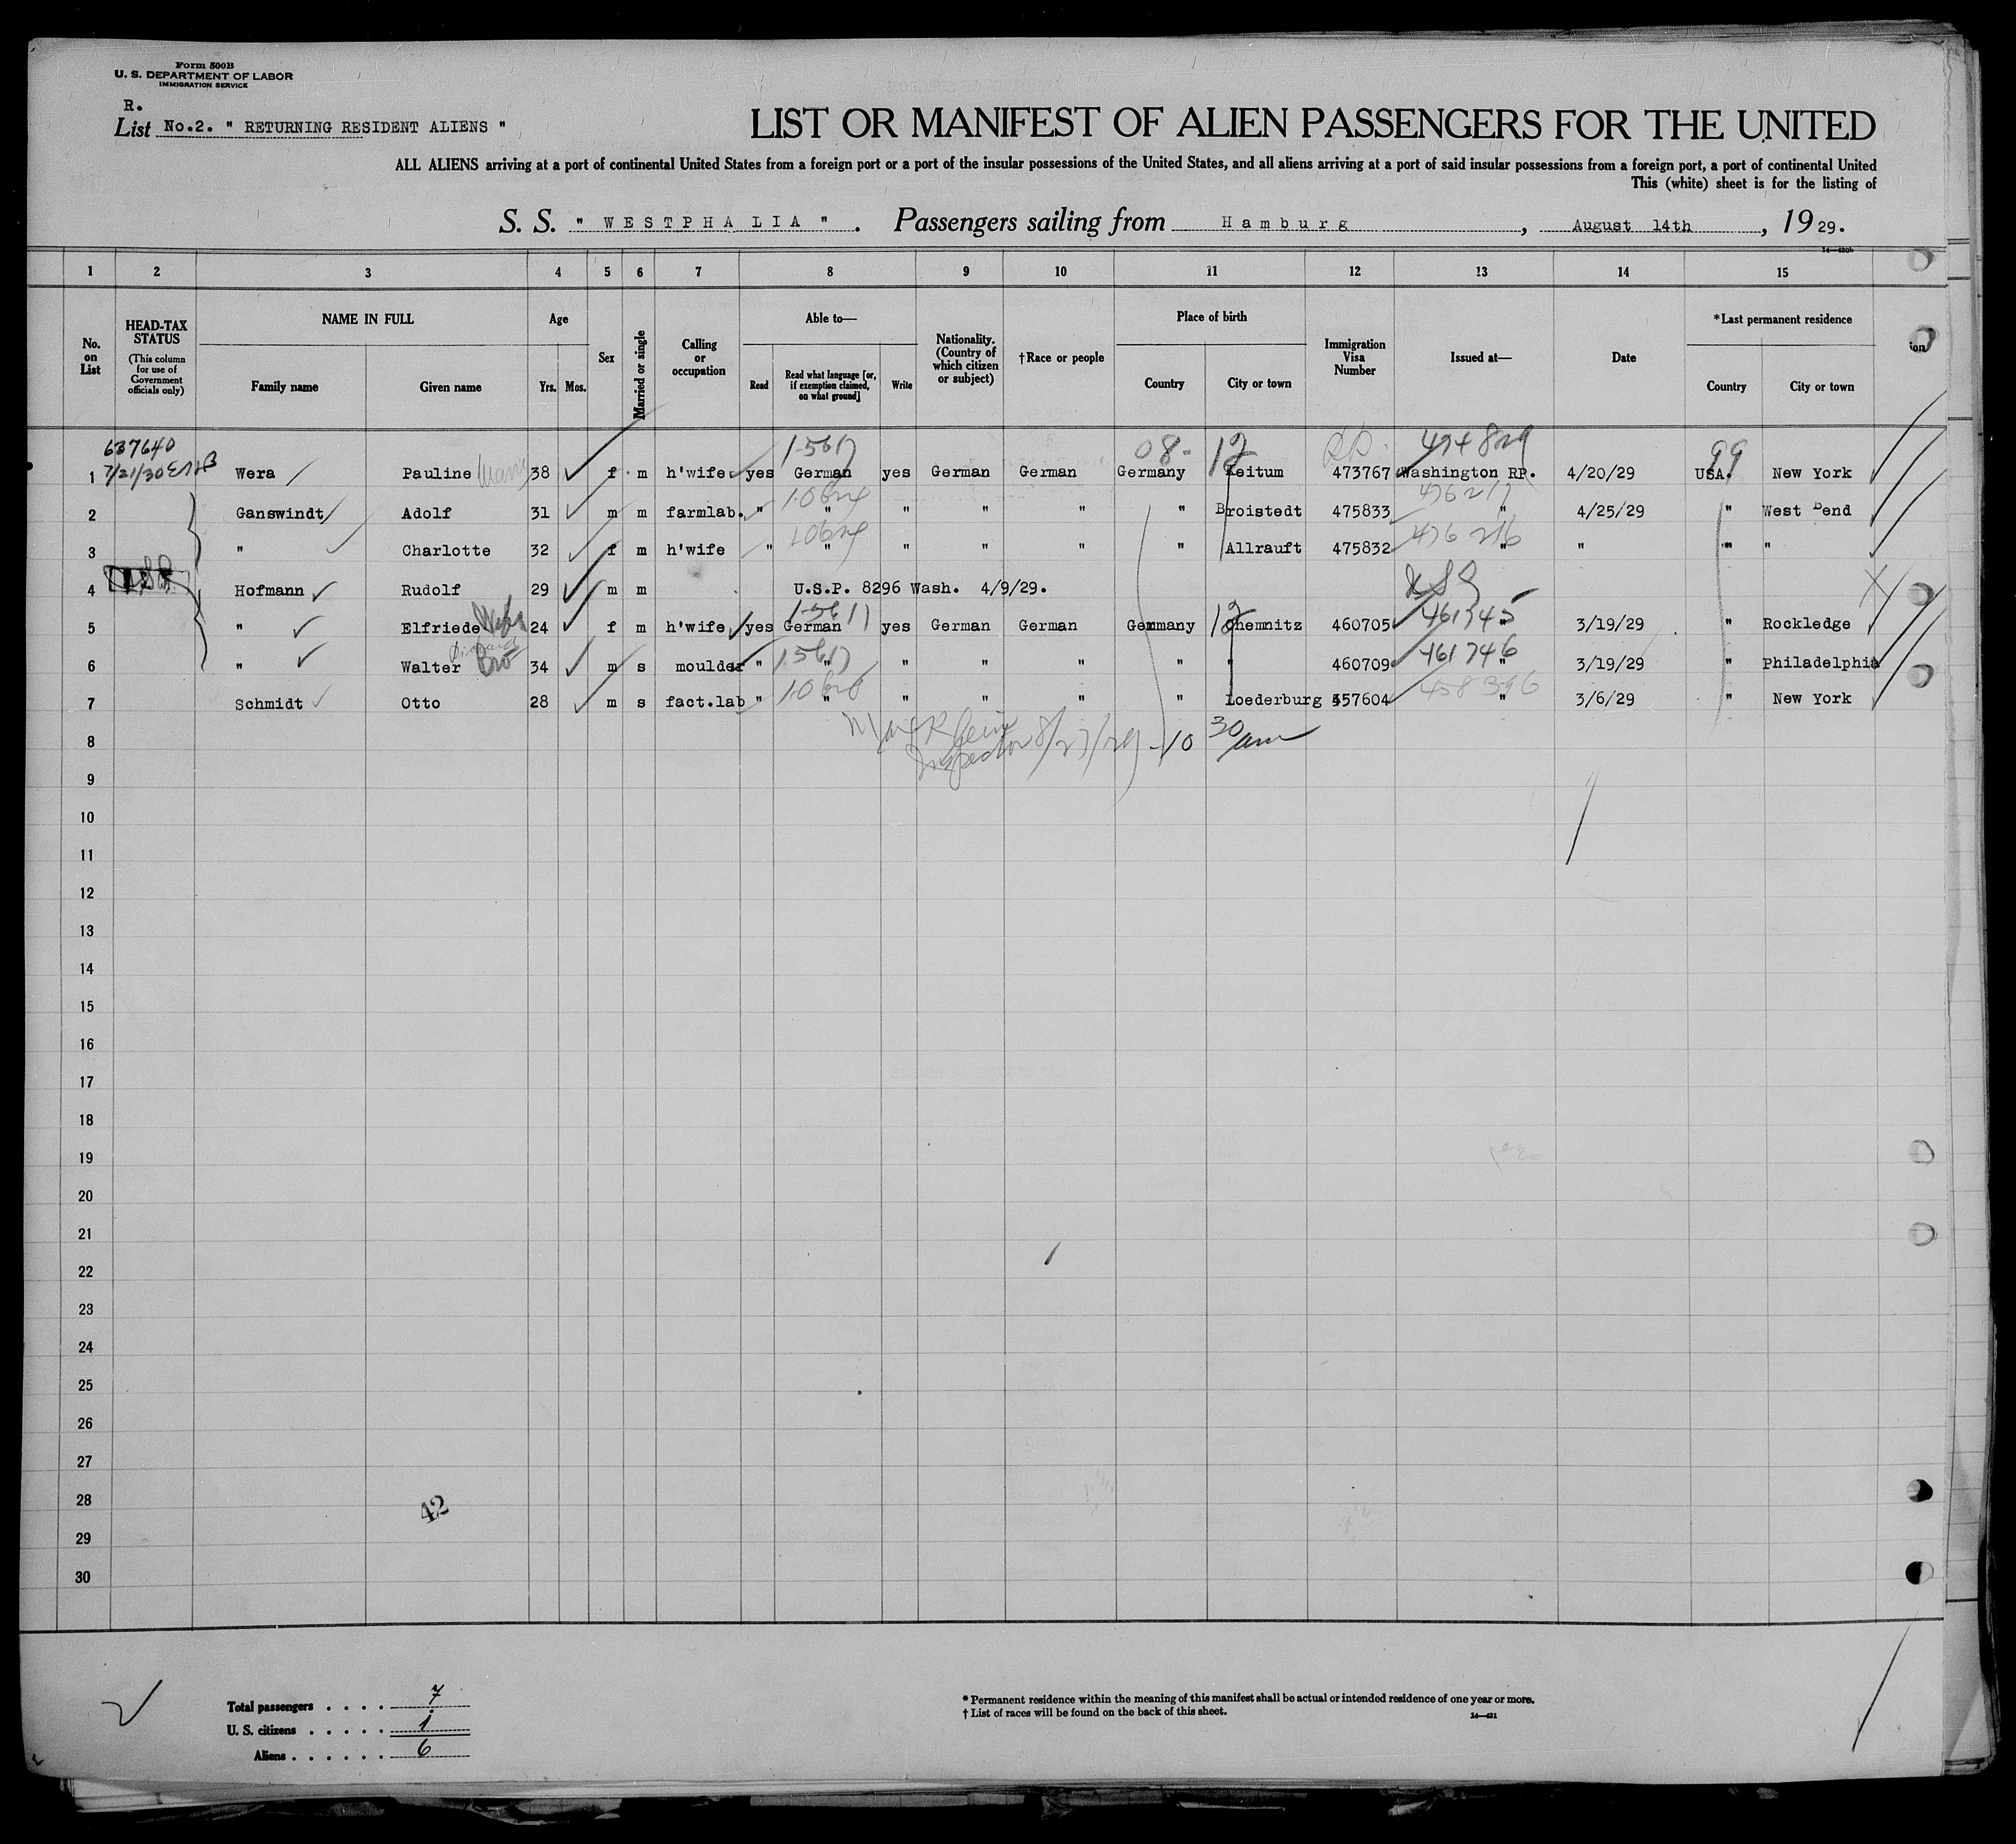 Form 500B
U. S. DEPARTMENT OF LABOR
IMMIGRATION SERVICE
R.
List No.2. " RETURNING RESIDENT ALIENS "
LIST OR MANIFEST OF ALIEN PASSENGERS FOR THE UNITED
ALL ALIENS arriving at a port of continental United States from a foreign port or a port of the insular possessions of the United States, and all aliens arriving at a port of said insular possessions from a foreign port, a port of continental United
This (white) sheet is for the listing of
S. S. " WESTPHALIA ". Passengers sailing from Hamburg, August 14th, 1929.
1 2 3 4 5 6 7 8 9 10 11 12 13 14 15
No. on List
HEAD-TAX STATUS
(This column for use of Government officials only)
NAME IN FULL
Family name
Given name
Age
Yrs. Mos.
Sex
Married or single
Calling or occupation
Able to—
Read
Read what language [or, if exemption claimed, on what ground]
Write
Nationality. (Country of which citizen or subject)
†Race or people
Place of birth
Country
City or town
Immigration Visa Number
Issued at—
Date
*Last permanent residence
Country
City or town
637640
7/21/30
1 Wera Pauline 38 f m h'wife yes German yes German German Germany Keitum 473767 Washington RP. 4/20/29 USA. New York
2 Ganswindt Adolf 31 m m farmlab. " " " " " " Broistedt 475833 " 4/25/29 " West Bend
3 " Charlotte 32 f m h'wife " " " " " " Allrauft 475832 " " " "
4 Hofmann Rudolf 29 m m U.S.P. 8296 Wash. 4/9/29.
5 " Elfriede Wife 24 f m h'wife yes German yes German German Germany Chemnitz 460705 461745 " 3/19/29 " Rockledge
6 " Walter Bro 34 m s moulder " " " " " " " 460709 461746 " 3/19/29 " Philadelphia
7 Schmidt Otto 28 m s fact.lab " " " " " " Loederburg 457604 458396 " 3/6/29 " New York
8 Inspector 8/27/29 - 10 30 am
9
10
11
12
13
14
15
16
17
18
19
20
21
22
23
24
25
26
27
28
29
30
42
Total passengers . . . . 7
U. S. citizens . . . . . 1
Aliens . . . . . . 6
* Permanent residence within the meaning of this manifest shall be actual or intended residence of one year or more.
† List of races will be found on the back of this sheet.
14—421